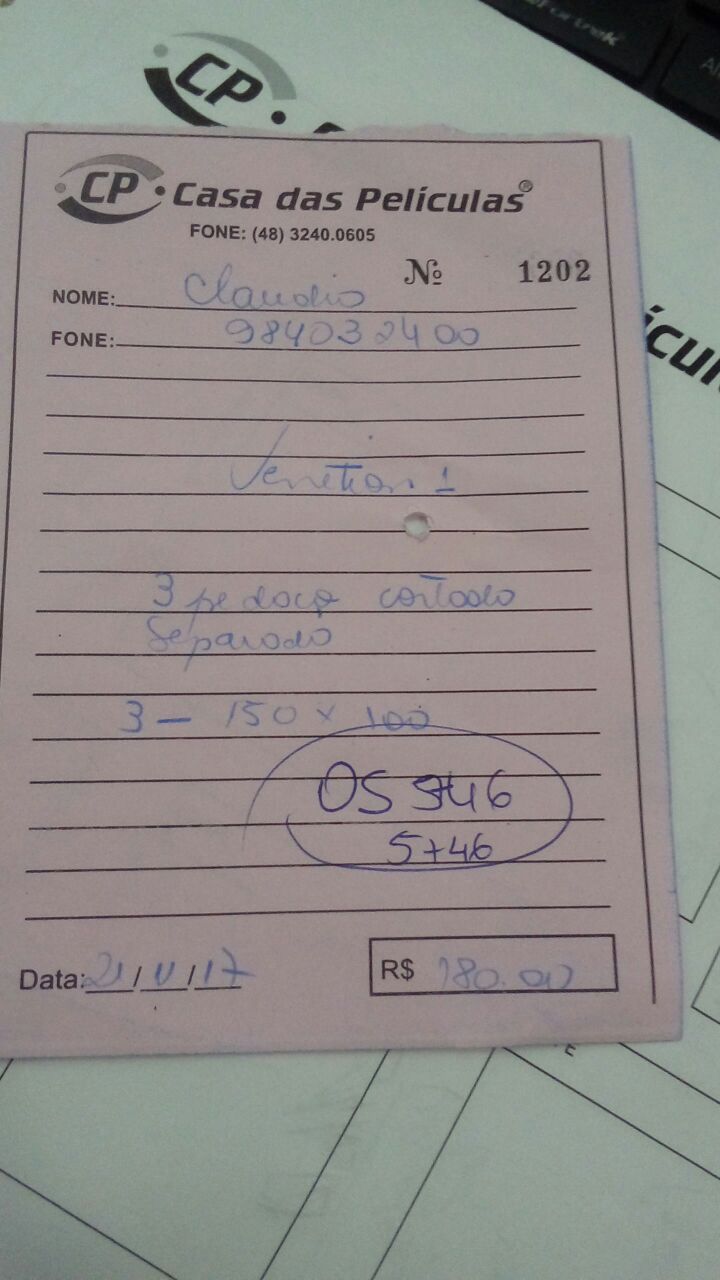 CP
CP Casa das Películas®
FONE: (48) 3240.0605
Nº 1202
NOME: Claudio
FONE: 984032400
Venetian. 1
3 pedaço cortado
Separado
3 - 150 x 100
OS 5746
5746
Data: 21/11/17
R$ 180.00